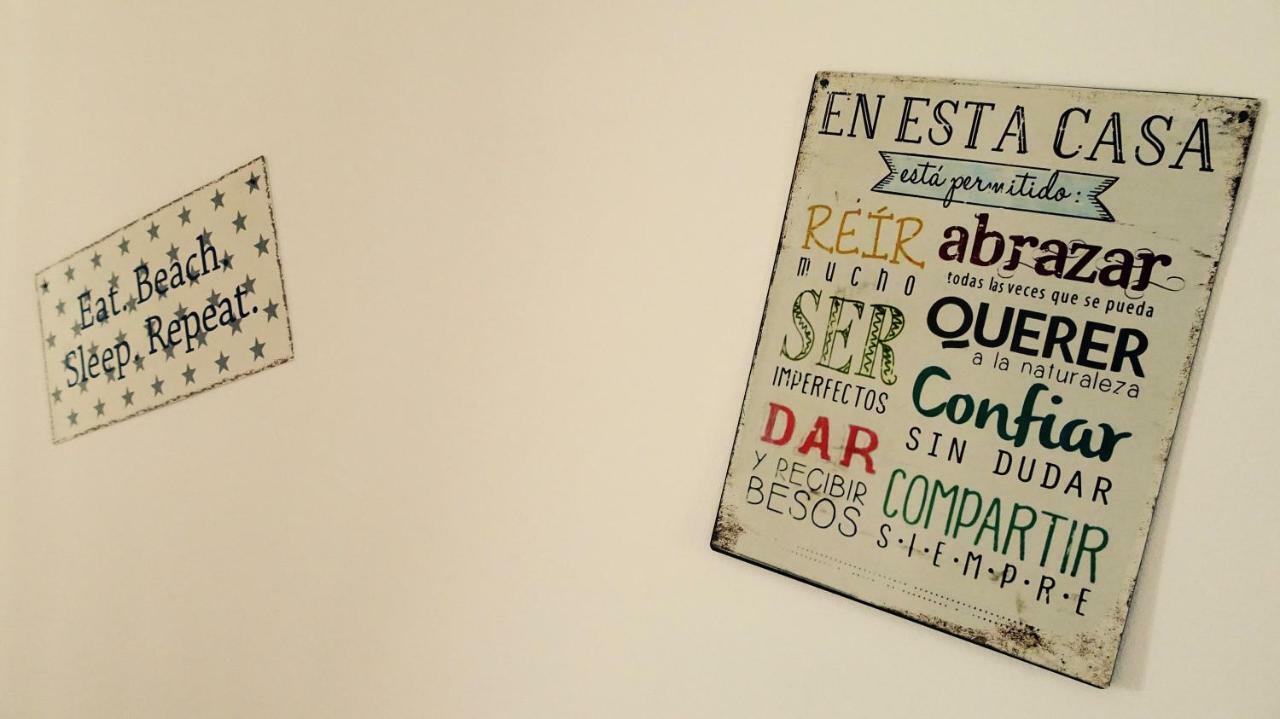 Eat. Beach.
Sleep. Repeat.
EN ESTA CASA
está permitido:
RÉÍR
mucho
SER
IMPERFECTOS
DAR
Y RECIBIR
BESOS
abrazar
todas las veces que se pueda
QUERER
a la naturaleza
Confiar
SIN DUDAR
COMPARTIR
S·I·E·M·P·R·E